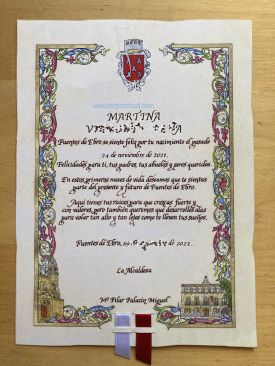 www.pergaminos.com
MARTINA
Fuentes de Ebro se siente feliz por tu nacimiento el pasado
24 de noviembre de 2021.
Felicidades para ti, tus padres, tus abuelos y seres queridos.
En estos primeros meses de vida deseamos que te sientas
parte del presente y futuro de Fuentes de Ebro.
Aquí tienes tus raíces para que crezcas fuerte y
con valores, pero también queremos que desarrolles alas
para volar tan alto y tan lejos como te lleven tus sueños.
Fuentes de Ebro, de 2022.
La Alcaldesa
Mª Pilar Palacín Miguel